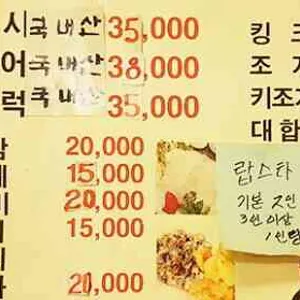 시국내산 35,000
어국내산 38,000
럭국내산 35,000
20,000
15,000
20,000
15,000
21,000
킹
조
키조
대합
랍스타
기본 2인
3인이상
1인당